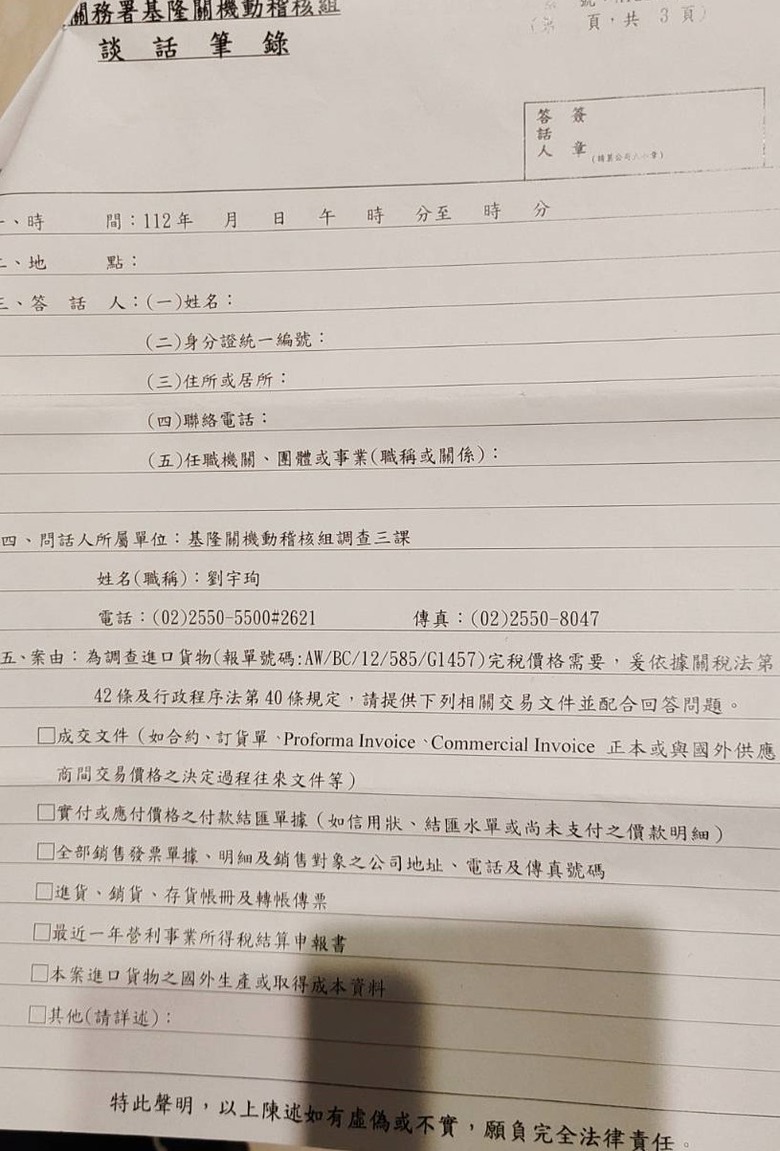 關務署基隆關機動稽核組
談話筆錄
頁,共 3 頁)
答話人 簽章(精裝公司大小章)
一、時 間:112年 月 日 午 時 分至 時 分
二、地 點:
三、答 話 人:(一)姓名:
(二)身分證統一編號:
(三)住所或居所:
(四)聯絡電話:
(五)任職機關、團體或事業(職稱或關係):
四、問話人所屬單位:基隆關機動稽核組調查三課
姓名(職稱):劉宇珣
電話:(02)2550-5500#2621 傳真:(02)2550-8047
五、案由:為調查進口貨物(報單號碼:AW/BC/12/585/G1457)完稅價格需要,爰依據關稅法第
42條及行政程序法第40條規定,請提供下列相關交易文件並配合回答問題。
□成交文件(如合約、訂貨單、Proforma Invoice、Commercial Invoice 正本或與國外供應
商間交易價格之決定過程往來文件等)
□實付或應付價格之付款結匯單據(如信用狀、結匯水單或尚未支付之價款明細)
□全部銷售發票單據、明細及銷售對象之公司地址、電話及傳真號碼
□進貨、銷貨、存貨帳冊及轉帳傳票
□最近一年營利事業所得稅結算申報書
□本案進口貨物之國外生產或取得成本資料
□其他(請詳述):
特此聲明,以上陳述如有虛偽或不實,願負完全法律責任。